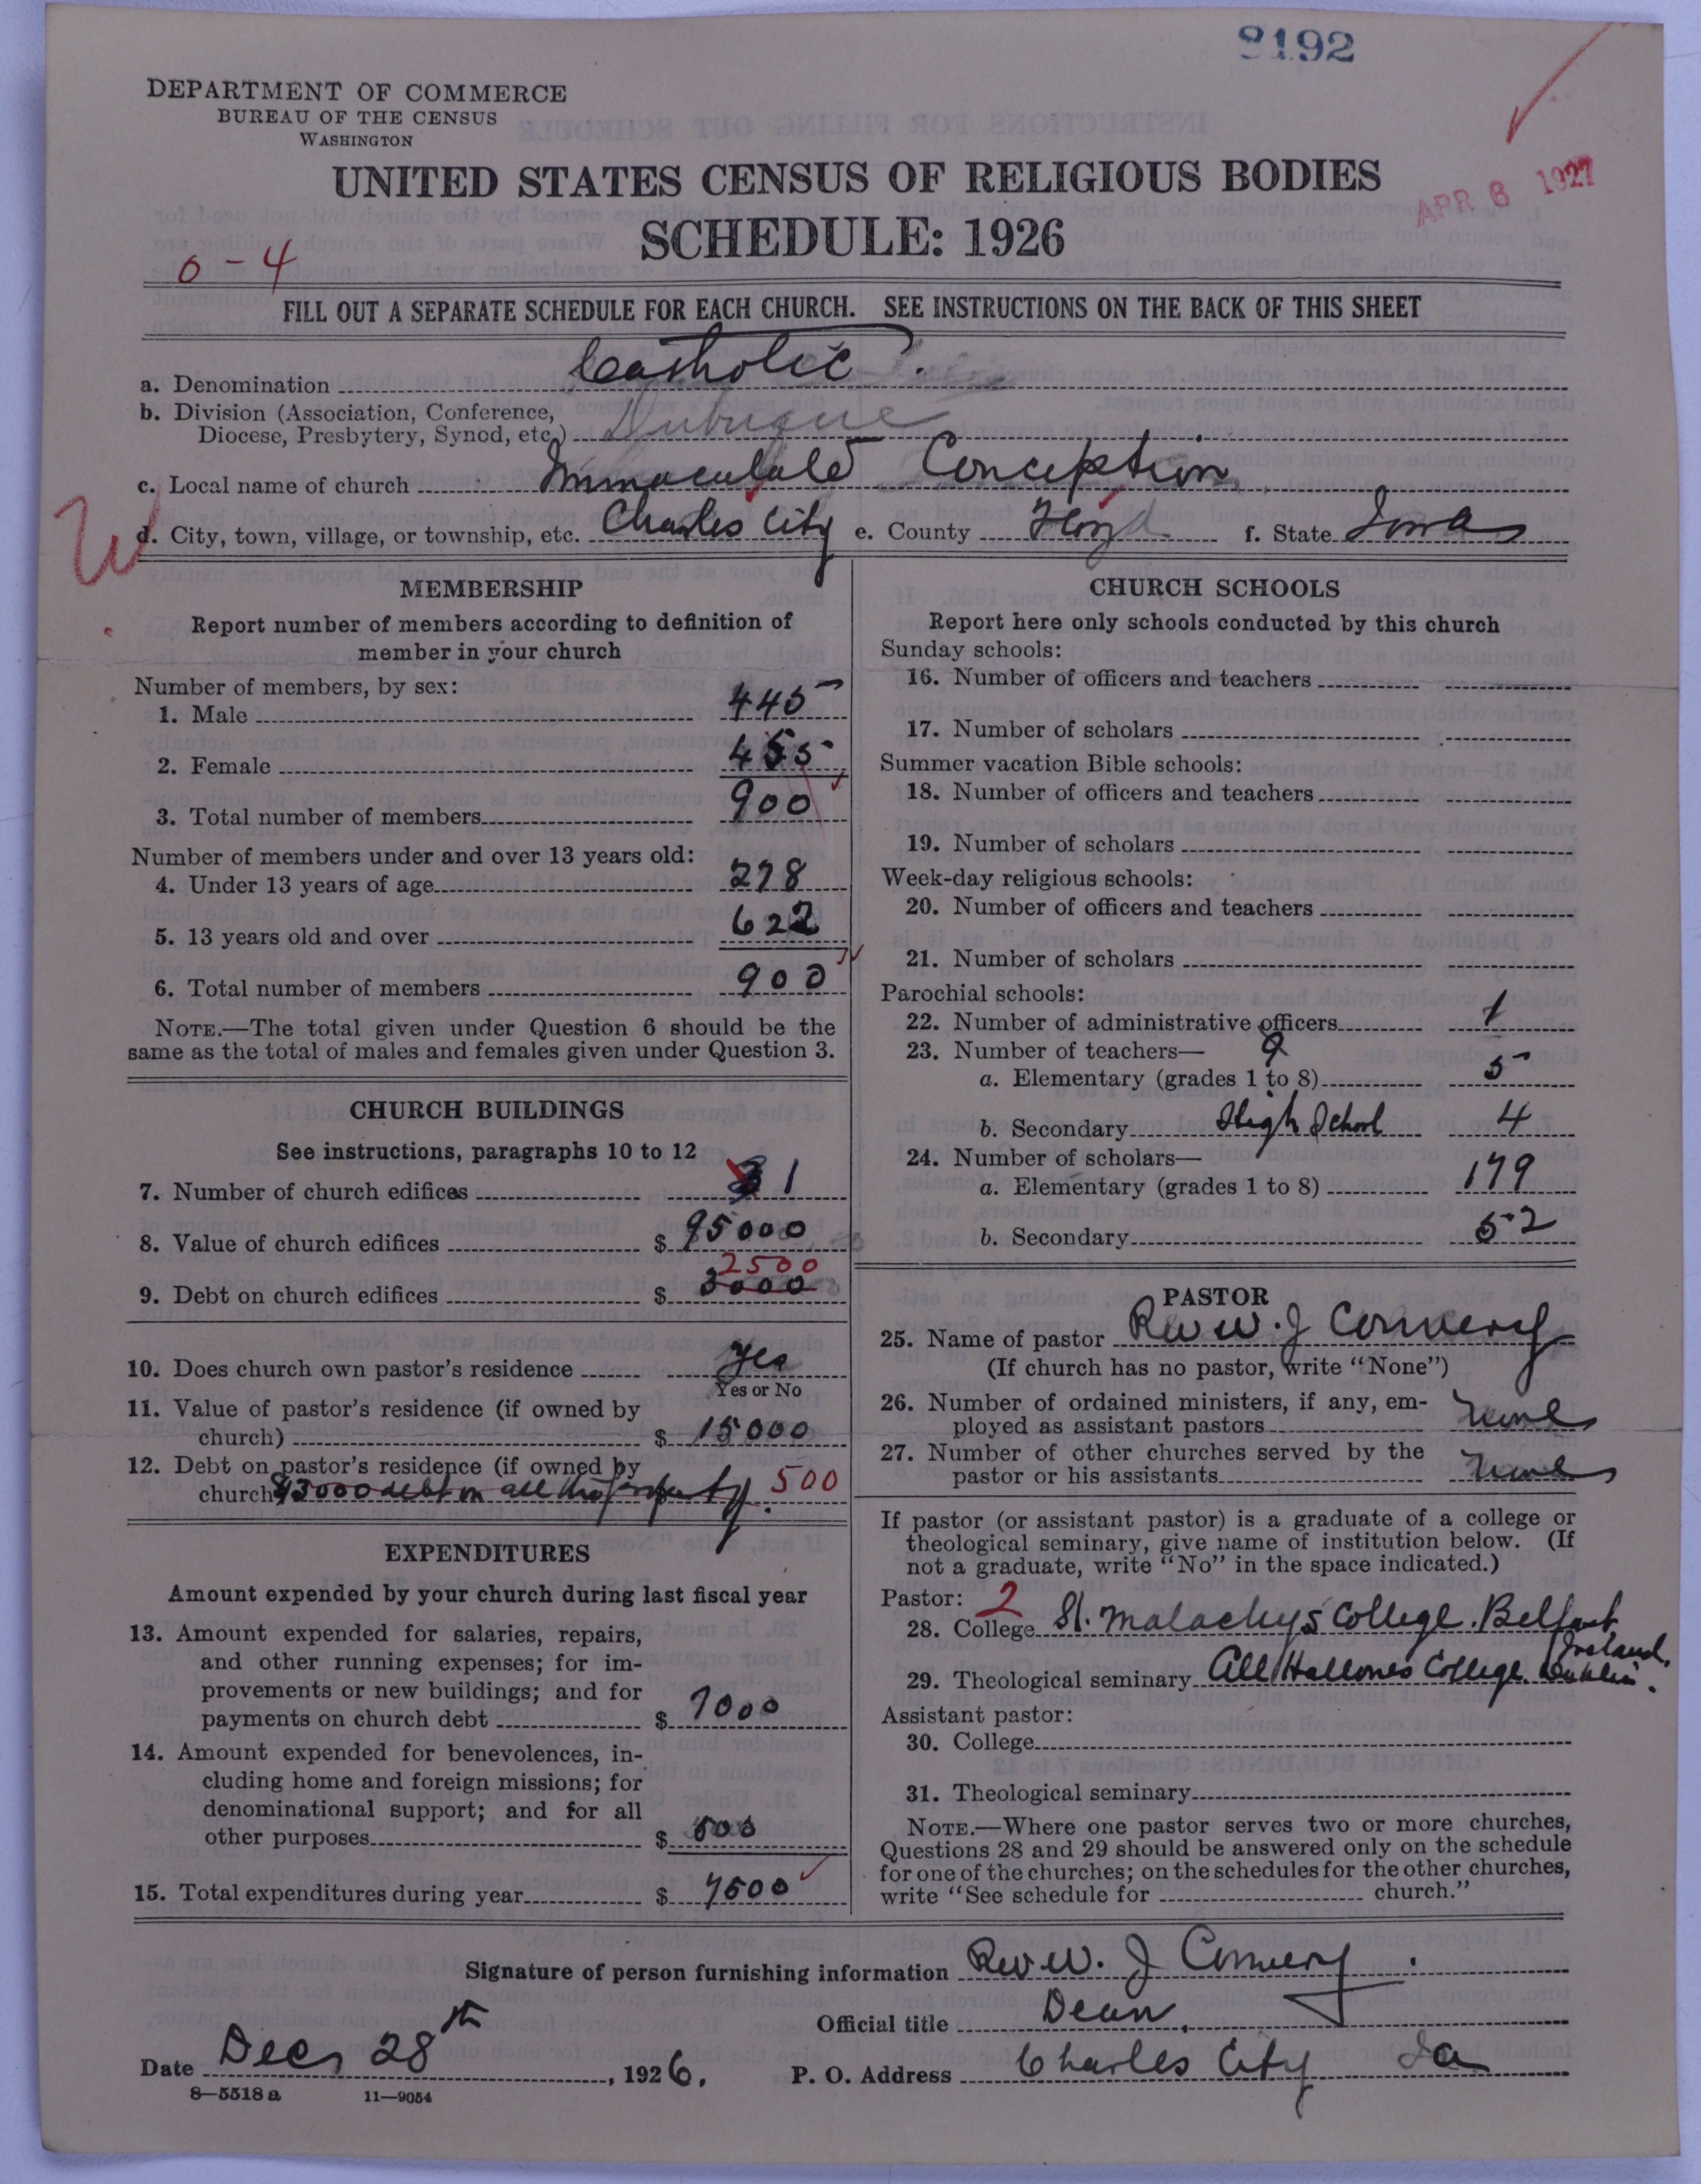 8192
DEPARTMENT OF COMMERCE
BUREAU OF THE CENSUS
WASHINGTON
UNITED STATES CENSUS OF RELIGIOUS BODIES
APR 6 1927
SCHEDULE: 1926
0-4
FILL OUT A SEPARATE SCHEDULE FOR EACH CHURCH. SEE INSTRUCTIONS ON THE BACK OF THIS SHEET
a. Denomination Catholic.
b. Division (Association, Conference,
Diocese, Presbytery, Synod, etc.) Dubuque
c. Local name of church Immaculate Conception
d. City, town, village, or township, etc. Charles City e. County Floyd f. State Iowa
MEMBERSHIP
Report number of members according to definition of
member in your church
Number of members, by sex:
1. Male 445
2. Female 455
3. Total number of members 900
Number of members under and over 13 years old:
4. Under 13 years of age 278
5. 13 years old and over 622
6. Total number of members 900
NOTE.—The total given under Question 6 should be the
same as the total of males and females given under Question 3.
CHURCH BUILDINGS
See instructions, paragraphs 10 to 12
7. Number of church edifices 3 1
8. Value of church edifices $ 95000
2500
9. Debt on church edifices $ 3000
10. Does church own pastor's residence Yes
Yes or No
11. Value of pastor's residence (if owned by
church) $ 15000
12. Debt on pastor's residence (if owned by
church) $3000 debt on all the property. 500
EXPENDITURES
Amount expended by your church during last fiscal year
13. Amount expended for salaries, repairs,
and other running expenses; for im-
provements or new buildings; and for
payments on church debt $ 7000
14. Amount expended for benevolences, in-
cluding home and foreign missions; for
denominational support; and for all
other purposes $ 500
15. Total expenditures during year $ 7500
CHURCH SCHOOLS
Report here only schools conducted by this church
Sunday schools:
16. Number of officers and teachers
17. Number of scholars
Summer vacation Bible schools:
18. Number of officers and teachers
19. Number of scholars
Week-day religious schools:
20. Number of officers and teachers
21. Number of scholars
Parochial schools:
22. Number of administrative officers 1
23. Number of teachers— 9
a. Elementary (grades 1 to 8) 5
b. Secondary High School 4
24. Number of scholars—
a. Elementary (grades 1 to 8) 179
b. Secondary 52
PASTOR
25. Name of pastor Rev W. J Convery
(If church has no pastor, write "None")
26. Number of ordained ministers, if any, em-
ployed as assistant pastors None
27. Number of other churches served by the
pastor or his assistants None
If pastor (or assistant pastor) is a graduate of a college or
theological seminary, give name of institution below. (If
not a graduate, write "No" in the space indicated.)
Pastor: 2
28. College St. Malachys College. Belfast
Ireland.
29. Theological seminary All Hallows College Dublin.
Assistant pastor:
30. College
31. Theological seminary
NOTE.—Where one pastor serves two or more churches,
Questions 28 and 29 should be answered only on the schedule
for one of the churches; on the schedules for the other churches,
write "See schedule for church."
Signature of person furnishing information Rev W. J Convery.
Official title Dean.
Date Dec, 28th, 1926. P. O. Address Charles City Ia
8—5518a 11—9054